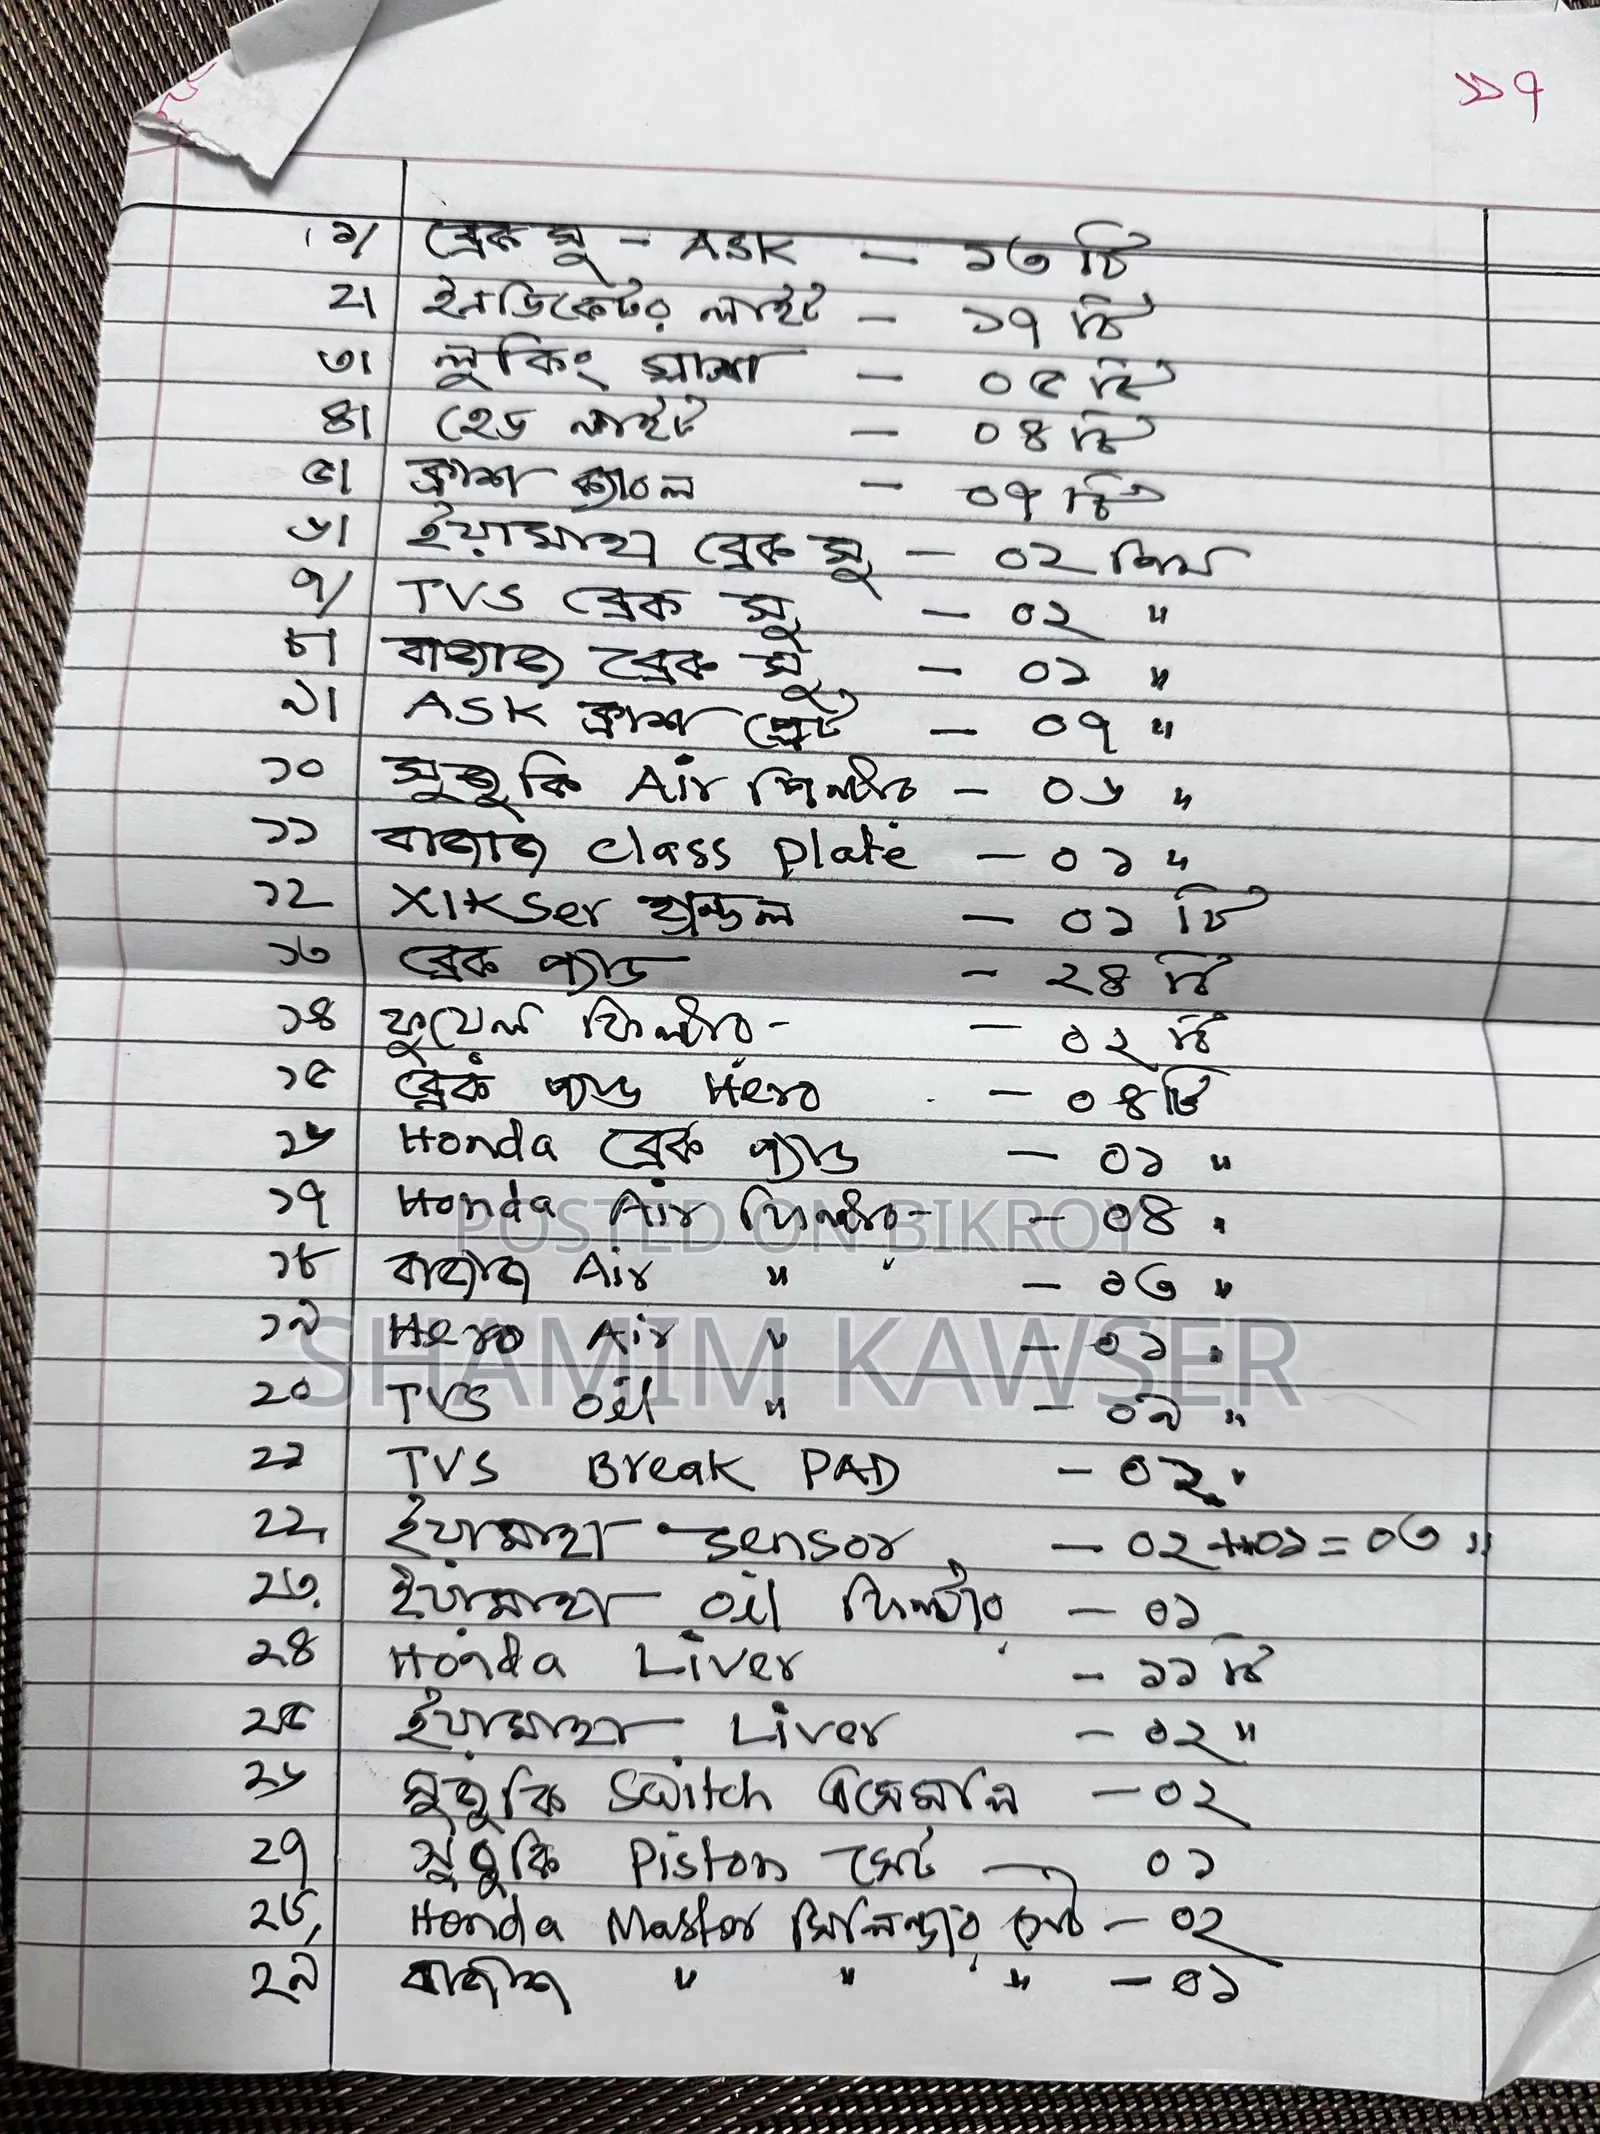 ১১৭
১/ ব্রেক সু - ASK - ১৩ টি
২। ইনডিকেটর লাইট - ১৭ টি
৩। লুকিং গ্লাস - ০৫ টি
৪। হেড লাইট - ০৪ টি
৫। ক্লাশ ক্যাবল - ০৭ টি
৬। ইয়ামাহা ব্রেক সু - ০২ পিস
৭/ TVS ব্রেক সু - ০২ "
৮। বাজাজ ব্রেক সু - ০১ "
৯। ASK ক্লাশ প্লেট - ০৭ "
১০ সুজুকি Air ফিল্টার - ০৬ "
১১ বাজাজ class plate - ০১ "
১২ XIKSer হ্যান্ডেল - ০১ টি
১৩ ব্রেক প্যাড - ২৪ টি
১৪ ফুয়েল ফিল্টার - ০২ টি
১৫ ব্রেক প্যাড Hero - ০৪ টি
১৬ Honda ব্রেক প্যাড - ০১ "
১৭ Honda Air ফিল্টার - ০৪ "
POSTED ON BIKROY
১৮ বাজাজ Air " - ০৩ "
১৯ Hero Air " - ০১ "
SHAMIM KAWSER
২০ TVS oil " - ০৯ "
২১ TVS Break PAD - ০২ "
২২ ইয়ামাহা sensor - ০২+০১=০৩ "
২৩. ইয়ামাহা oil ফিল্টার - ০১
২৪ Honda Liver - ১১ টি
২৫ ইয়ামাহা Liver - ০২ "
২৬ সুজুকি Switch এসেমলি - ০২
২৭ সুজুকি Piston সেট - ০১
২৮, Honda Mastor সিলিন্ডার সেট - ০২
২৯ বাজাশ " " " - ০১